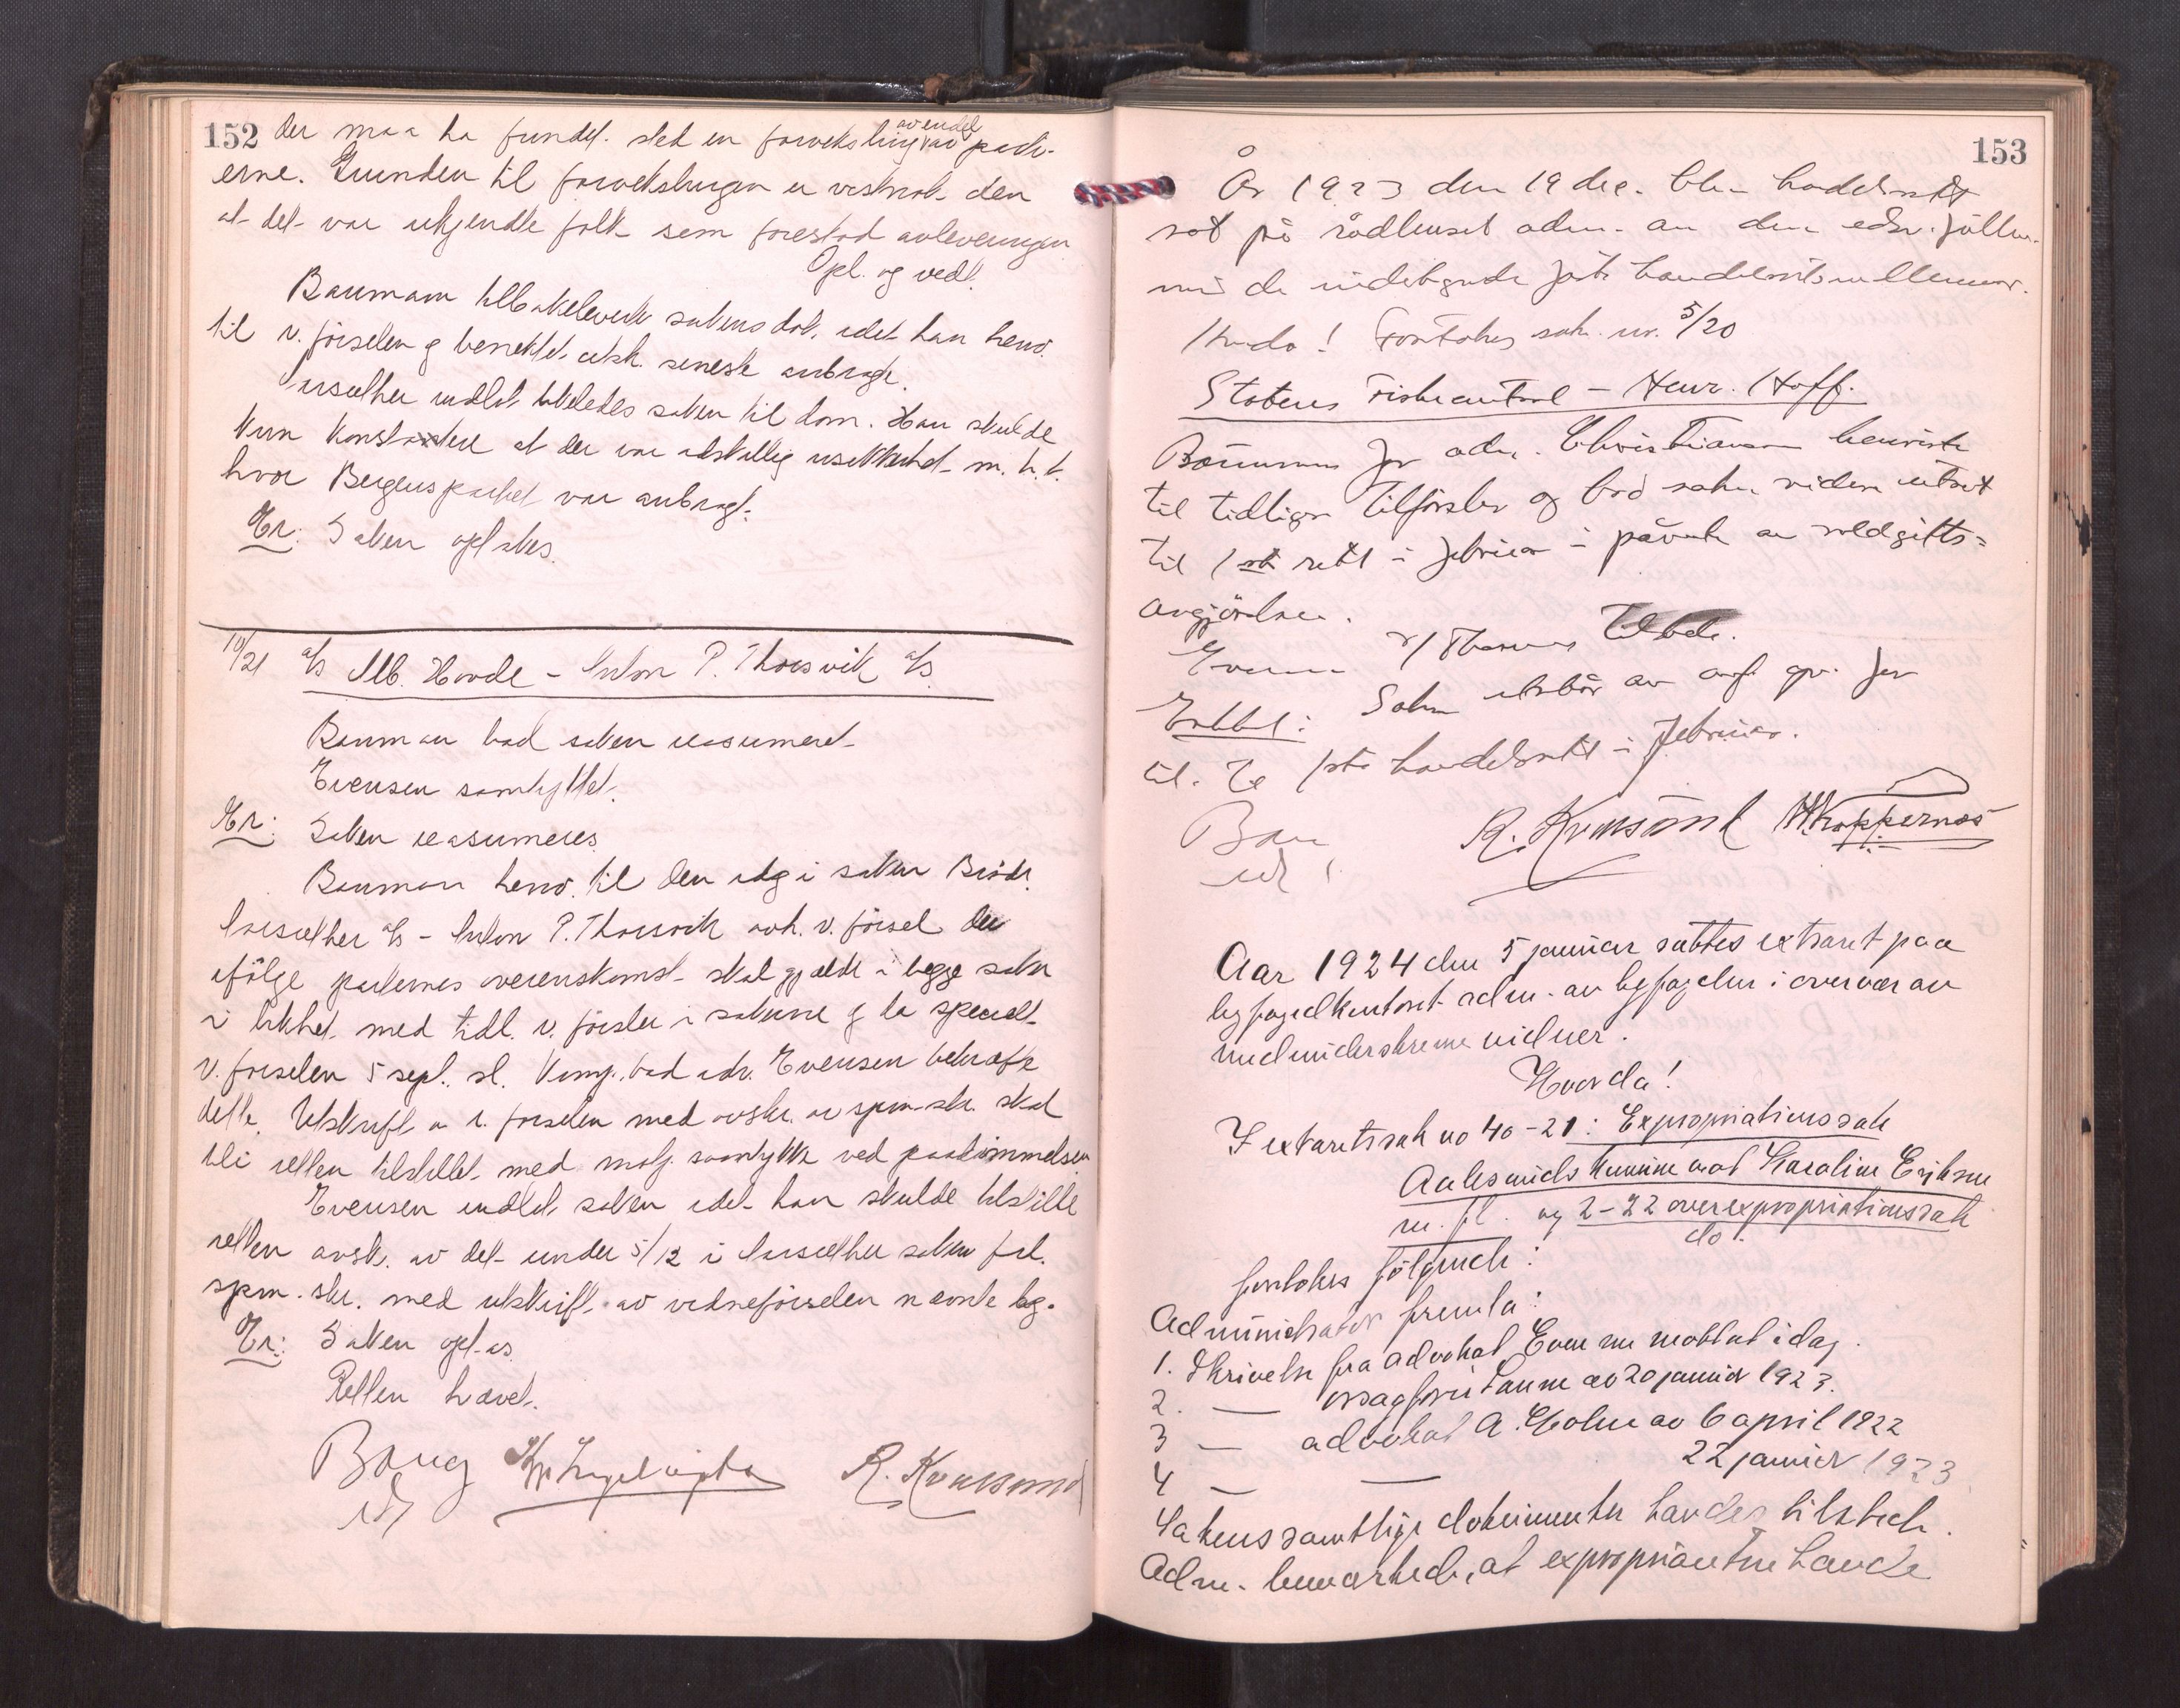 152
der maa ha fundet sted en forveksling av endel av parti-
erne. Grunden til forvekslingen er vistnok den
at det var ukjendte folk som forestod avleveringen
Opl. og vedt.
Bauman tilbakeleverte sakens dok. idet han henv.
til v. förselen g benektet utsk. seneste anbragt.
indlot likeledes saken til dom. Han skulde
kun konstatere at der var adskillig usikkerhet m. h. t.
hvor Bergenspartiet var anbragt.
Er: Saken optakes.
10/21 a/s Alb. Hovde – Anton P. Thorsvik a/s
Bauman bad saken reasumeret
Evensen samtykket.
Er: Saken reasumeres
Bauman henv. til den idag i saken Brödr.
a/s – Anton P. Thorsvik avh. v. försel der
ifölge parternes overenskomst skal gjælde i begge saker
i likhet med tidl. v. försler i sakerne g la specielt
v. förselen 5 sept. sl. Komp. bad adv. Evensen bekræfte
dette. Utskrift av v. förselen med avskr. av spm. skr. skal
bli retten tilstillet med motp. samtykke ved paadömmelsen
Evensen indlot saken idet han skulde tilstille
retten avsk. av det under 5/12 i saken frl.
spm. skr. med utskrift av vidneförselen nævnte dag.
Er: Saken opt. as.
Retten hævet.
R. Kvensund
153
År 1923 den 19 dec. blev handelsrett
sat på rådhuset adm. av den edsv. fullm.
med de indebyrdes faste handelsrettsmedlemmer.
Hvorda! Foretokes sak nr. 5/20
Statens Fiskecentral – Henr. Hoff.
Bauman for adv. Christiansen henviste
til tidligere tilförsler og bad saken videre utsat
til 1ste rett i februar i påvente av voldgifts-
avgjörelsen.
Evensen v/ Thomas Tiltraadte.
Eragtet: Saken utsættes av anf. gr. fra
til 1ste handelsrett i februar.
R. Kvensund H. Koppernæs
Aar 1924 den 5 januar sattes extraret paa
byfogedkontoret adm. av byfogden i overvær av
medunderskrevne vidner.
Hvorda!
I extraretssak no 40–21: Expropriationssak
Aalesunds kommune mot Karoline Eriksen
m. fl. og 2–22 overexpropriationssak
do.
foretokes fölgende:
Administrator fremla:
1. Skrivelse fra advokat Evensen mottat idag.
2. — orsagförer Lanne av 20 januar 1923.
3 — advokat A. Holm av 6 april 1922
4 — — 22 januar 1923
Sakens samtlige dokumenter havdes tilstede.
Adm. bemerkede, at expropriantene havde